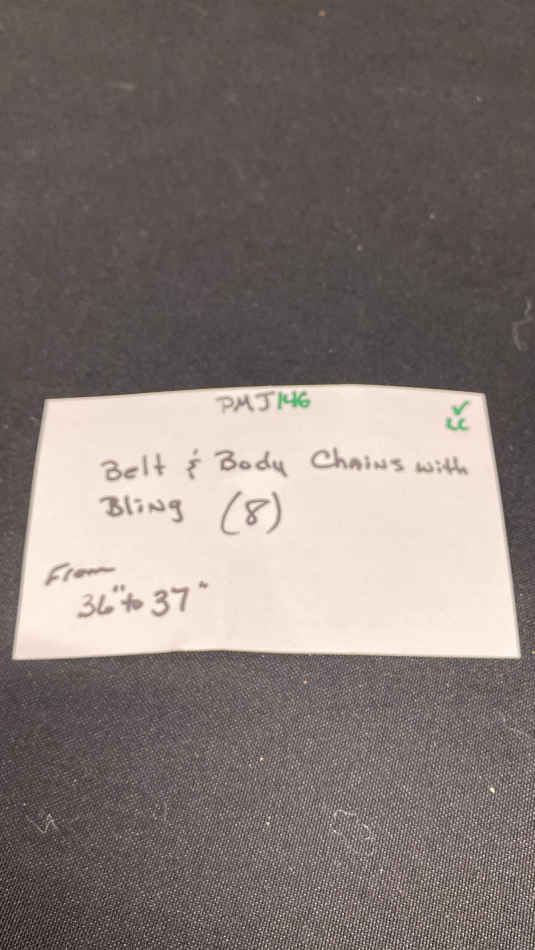 PMJ146
✓
LC
Belt & Body Chains with
Bling (8)
From
36" to 37"